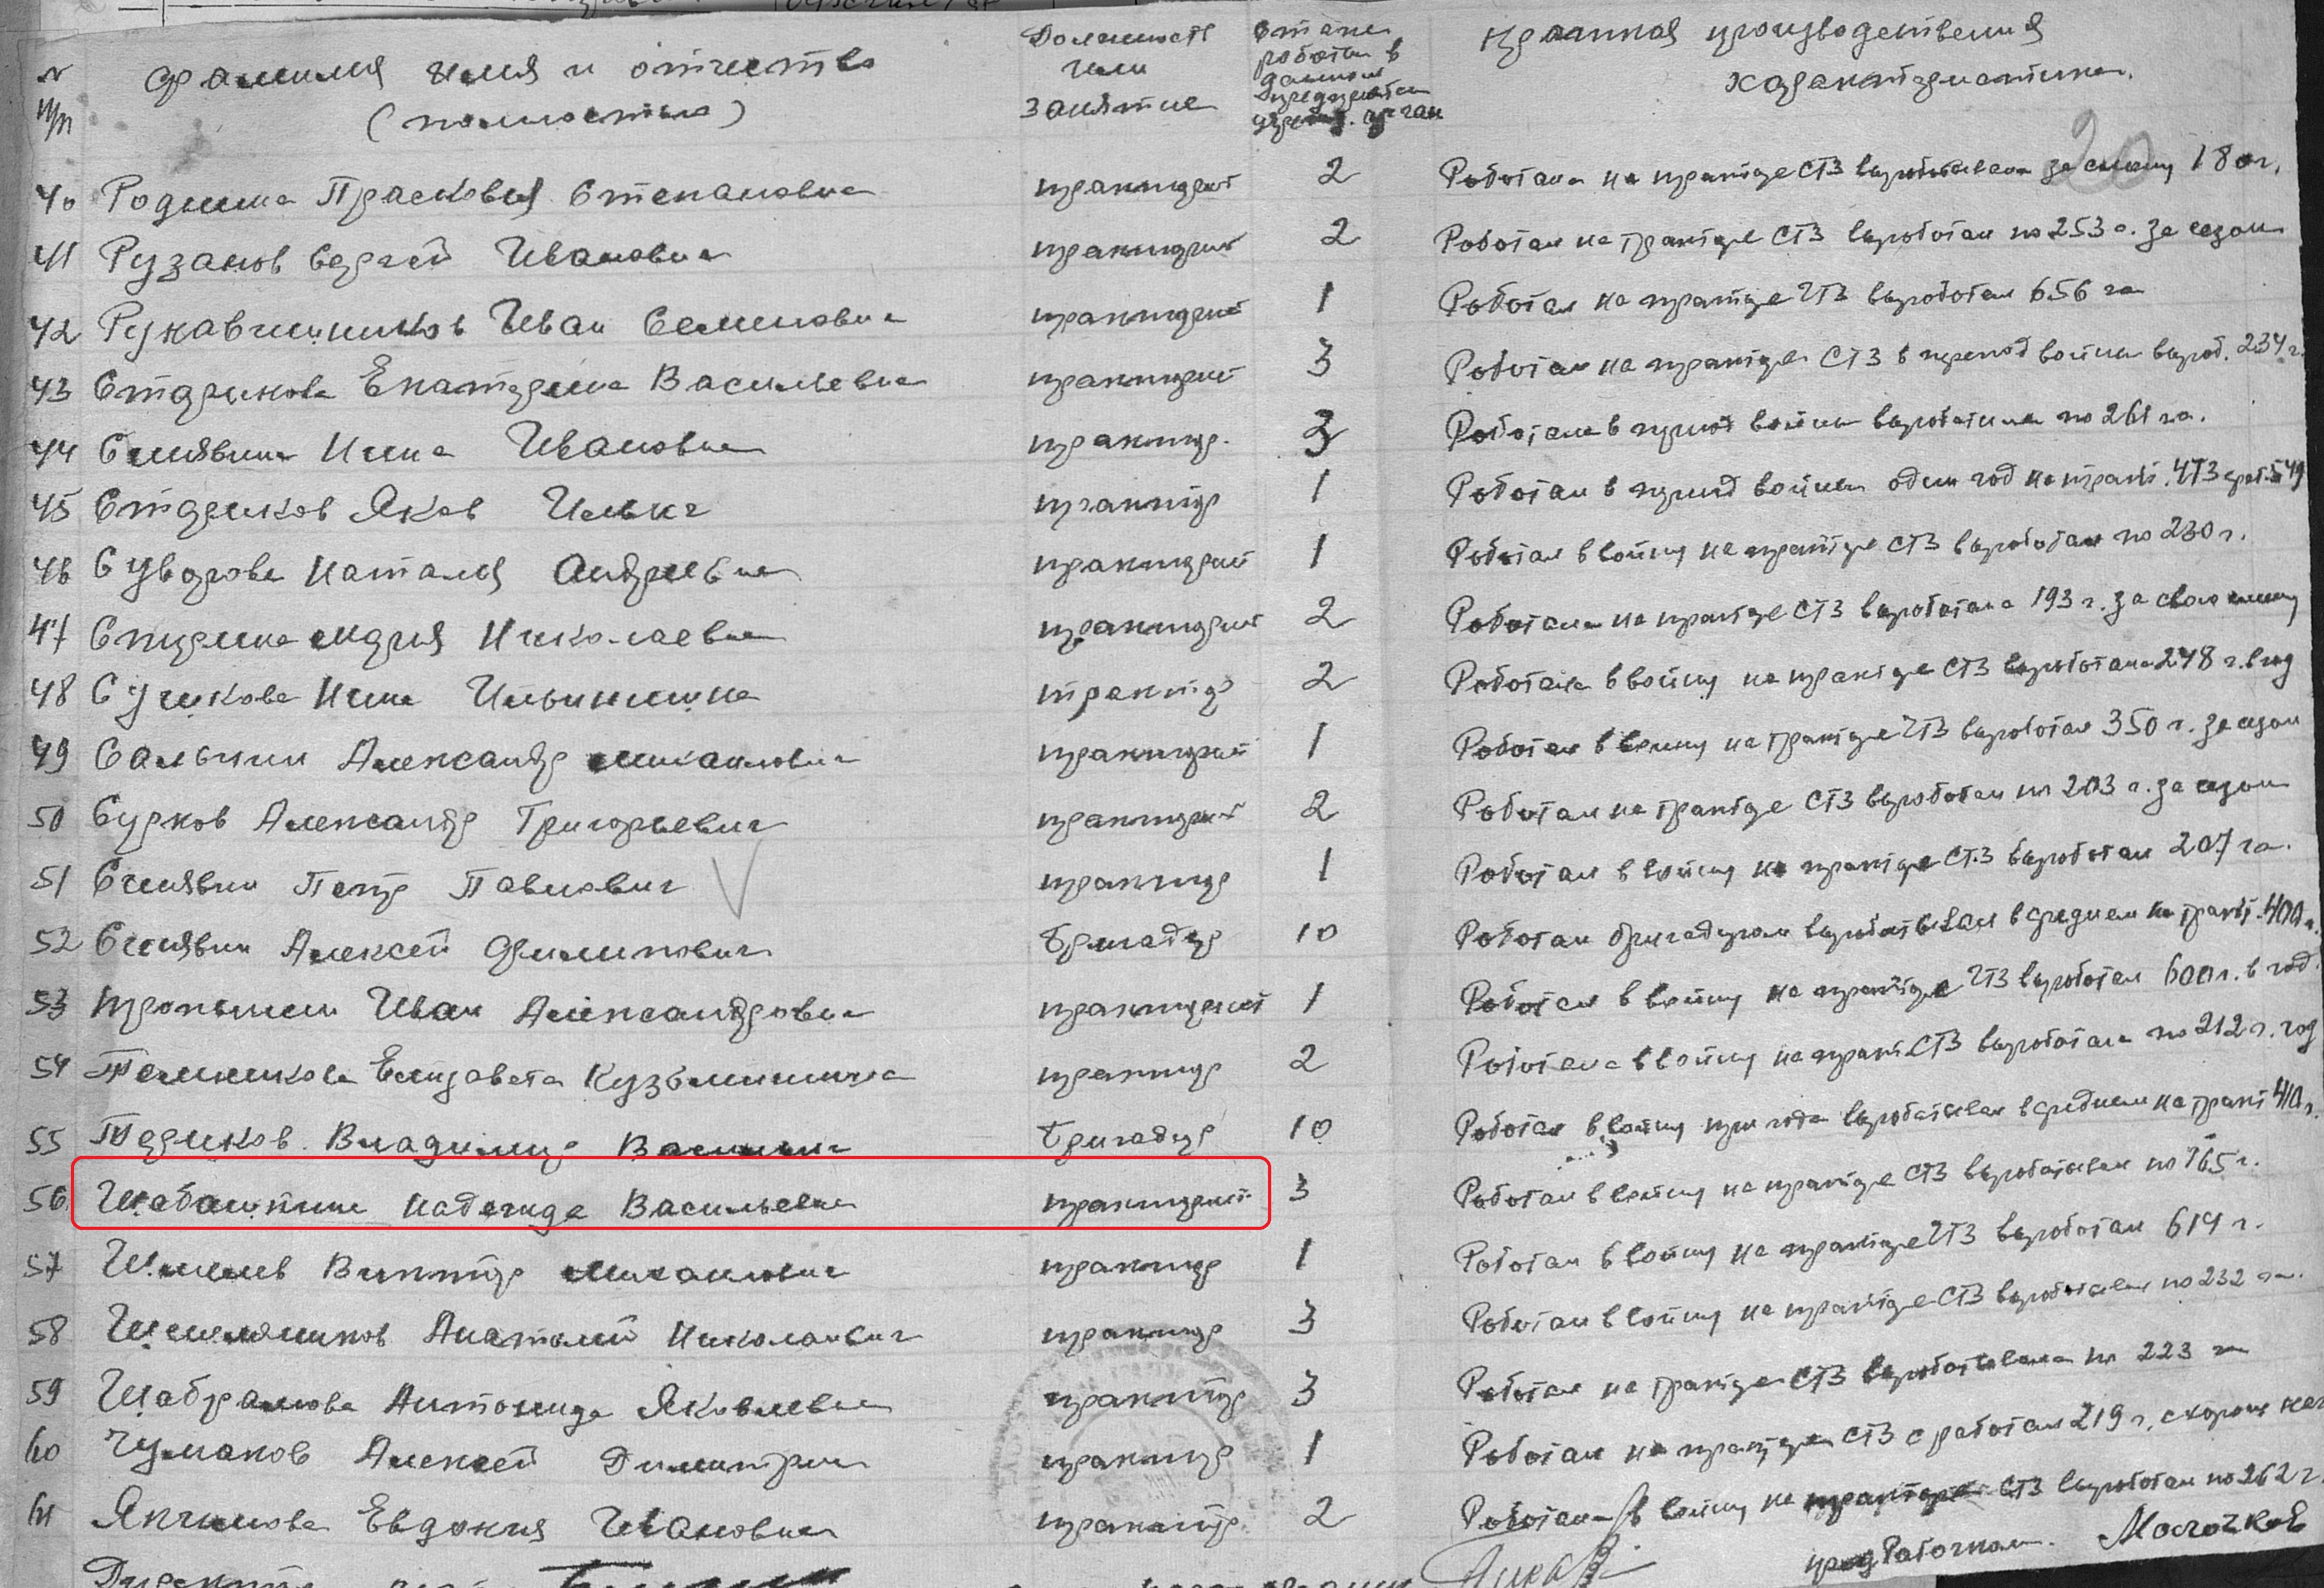 № п/п
фамилия имя и отчество (полностью)
Должность или занятие
Стаж работы в данном предприятии
краткая производственная характеристика.
20
40 Родина Прасковья Степановна тракторист 2 Работала на тракторе СТЗ вырабатывала за смену 180 г.
41 Рузанов Сергей Иванович тракторист 2 Работал на тракторе СТЗ выработал по 253 г. за сезон
42 Рукавишников Иван Семенович тракторист 1 Работал на тракторе ЧТЗ выработал 656 га
43 Старикова Екатерина Васильевна тракторист 3 Работал на тракторе СТЗ в период войны выраб. 234 г.
44 Синявина Нина Ивановна трактор. 3 Работала в период войны выработала по 261 га.
45 Стариков Яков Ильич трактор 1 Работал в период войны один год на тракт. ЧТЗ
46 Суворова Наталья Андреевна тракторист 1 Работал в войну на тракторе СТЗ выработал по 230 г.
47 Мария Николаевна тракторист 2 Работала на тракторе СТЗ выработала 193 г. за свою смену
48 Сушкова Нина Ильинична трактор 2 Работала в войну на тракторе СТЗ выработала 248 г. в год
49 Сальнин Александр Михайлович тракторист 1 Работал в войну на тракторе ЧТЗ выработал 350 г. за сезон
50 Сурков Александр Григорьевич тракторист 2 Работал на тракторе СТЗ выработал по 203 г. за сезон
51 Синявин Петр Павлович трактор 1 Работал в войну на тракторе СТЗ выработал 207 га.
52 Синявин Алексей Филипович Бригадир 10 Работал бригадиром вырабатывал в среднем на тракт. 400 г.
53 Иван Александрович тракторист 1 Работал в войну на тракторе ЧТЗ выработал 600 г. в год
54 Темникова Елизавета Кузьминична трактор 2 Работала в войну на тракт. СТЗ выработала по 212 г. год
55 Териков Владимир Васильич Бригадир 10 Работал в войну три года вырабатывал в среднем на тракт 410 г.
56 Шабашкина Надежда Васильевна тракторист 3 Работал в войну на тракторе СТЗ вырабатывал по 165 г.
57 Виктор Михайлович трактор 1 Работал в войну на тракторе ЧТЗ выработал 614 г.
58 Анатолий Николаевич трактор 3 Работал в войну на тракторе СТЗ вырабатывал по 232 га.
59 Шабрамова Антонида Яковлевна трактор 3 Работал на тракторе СТЗ вырабатывала по 223 га
60 Чумаков Алексей Димитрич трактор 1 Работал на тракторе СТЗ сработал 219 г.
61 Япчинова Евдокия Ивановна трактор. 2 Работала в войну на тракторе СТЗ выработал по 262 г.
пред Рабочком. Молочков